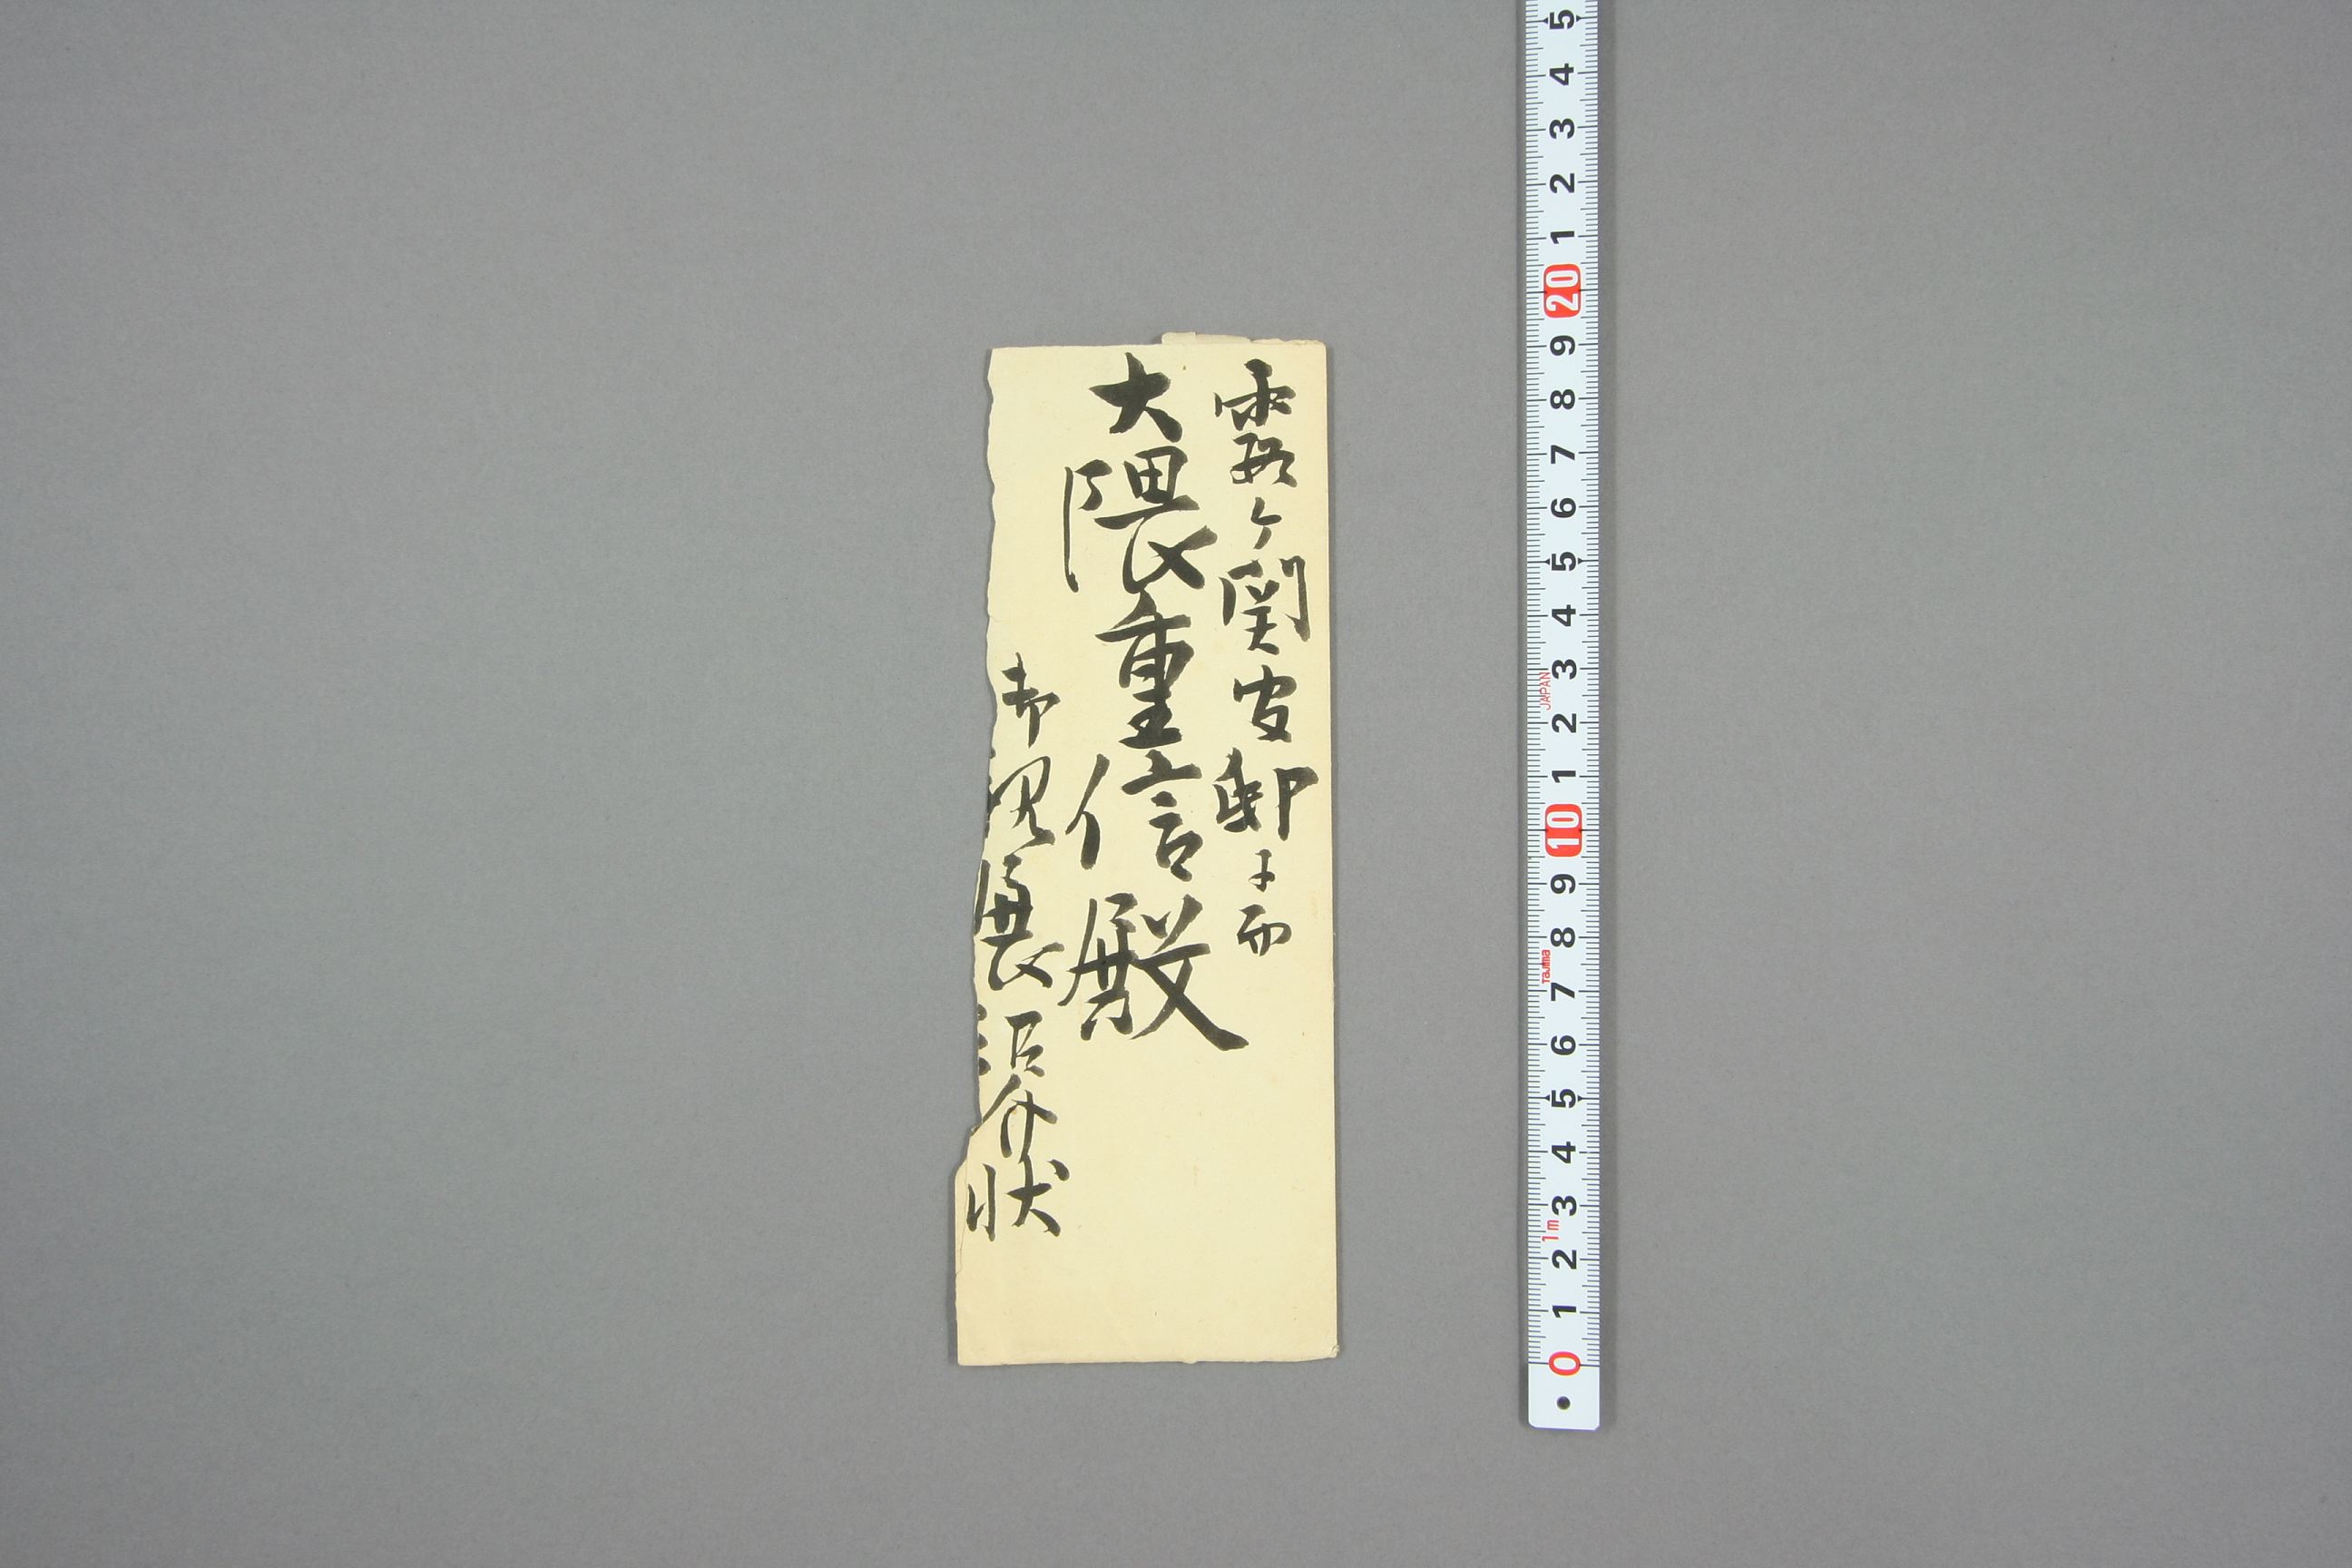 霞ヶ関官邸ニ而
大隈重信殿
御親展紹介状
5 4 3 2 1 20 9 8 7 6 5 4 3 2 1 10 9 8 7 6 5 4 3 2 1 0
JAPAN
Tajima
1m